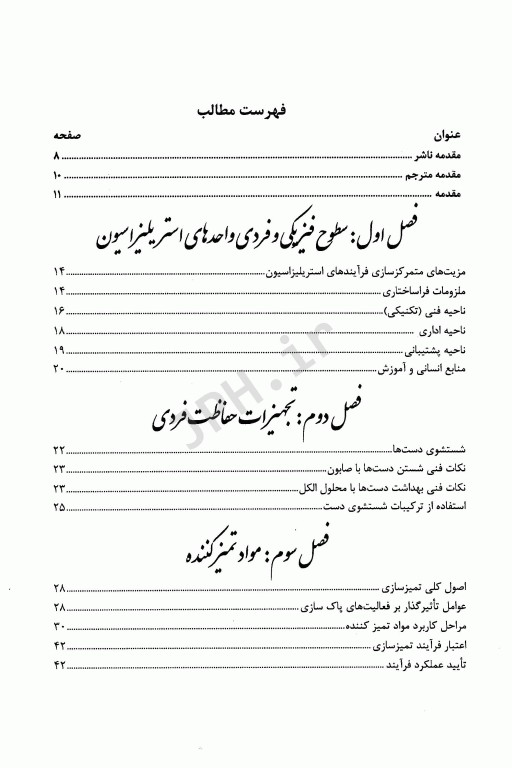 فهرست مطالب
عنوان صفحه
مقدمه ناشر ۸
مقدمه مترجم ۱۰
مقدمه ۱۱
فصل اول: سطوح فیزیکی و فردی واحدهای استریلیزاسیون
مزیت‌های متمرکزسازی فرآیندهای استریلیزاسیون ۱۴
ملزومات فراساختاری ۱۴
ناحیه فنی (تکنیکی) ۱۶
ناحیه اداری ۱۸
ناحیه پشتیبانی ۱۹
منابع انسانی و آموزش ۲۰
JPH.ir
فصل دوم: تجهیزات حفاظت فردی
شستشوی دست‌ها ۲۲
نکات فنی شستن دست‌ها با صابون ۲۳
نکات فنی بهداشت دست‌ها با محلول الکل ۲۳
استفاده از ترکیبات شستشوی دست ۲۵
فصل سوم: مواد تمیزکننده
اصول کلی تمیزسازی ۲۸
عوامل تأثیرگذار بر فعالیت‌های پاک سازی ۲۸
مراحل کاربرد مواد تمیز کننده ۳۰
اعتبار فرآیند تمیزسازی ۴۲
تأیید عملکرد فرآیند ۴۲